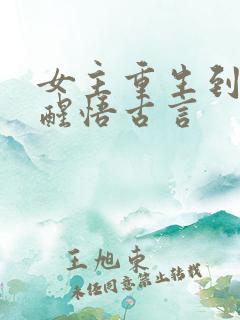 女主重生到
醒悟古言
王旭东
未经同意禁止转载